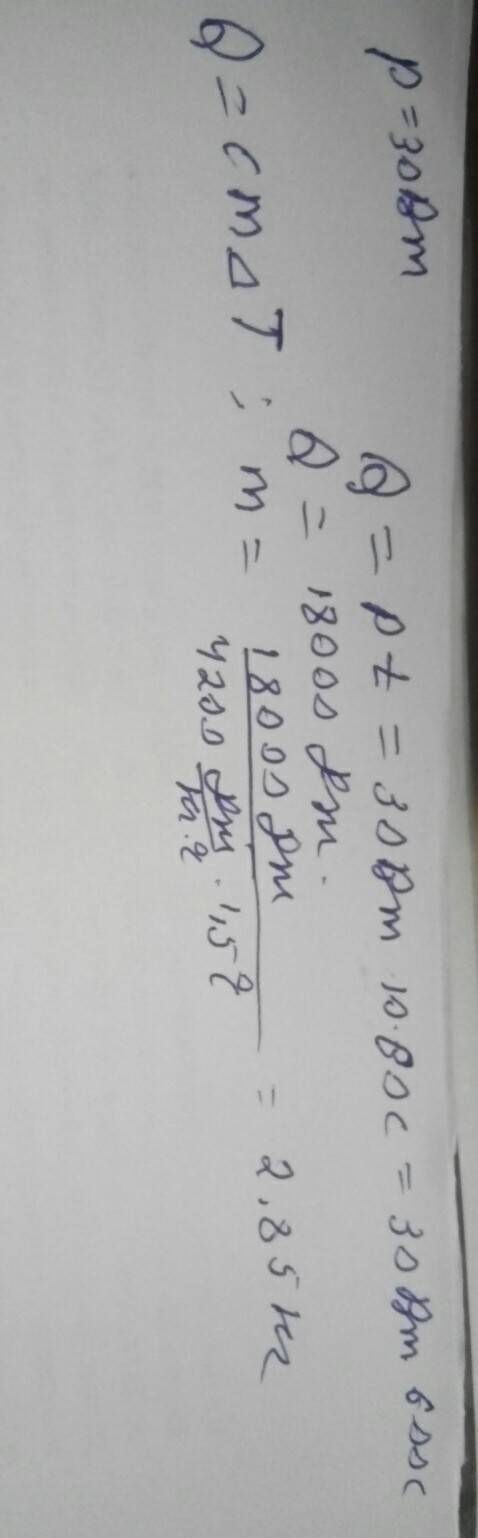 P = 30 Вт
Q = Pt = 30 Вт · 10 · 60 с = 30 Вт 600 с
Q = 18000
Q = cmΔT ; m = 18000 / 4200 · 1,5 = 2,85 кг